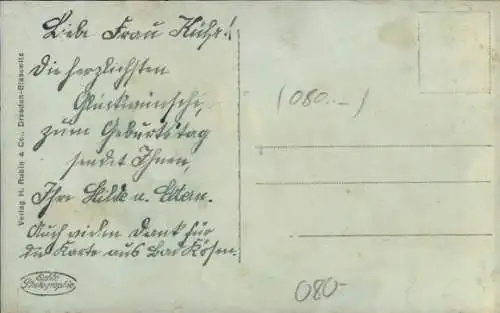 Liebe Frau Kühr!
die herzlichsten
Glückwünsche,
zum Geburtstag
sendet Ihnen,
Ihre Hilde u. Eltern.
Auch vielen Dank für
die Karte aus Bad Kösen.
Verlag H. Rubin & Co., Dresden-Blasewitz
Echte
Photographie
(080..-)
080-